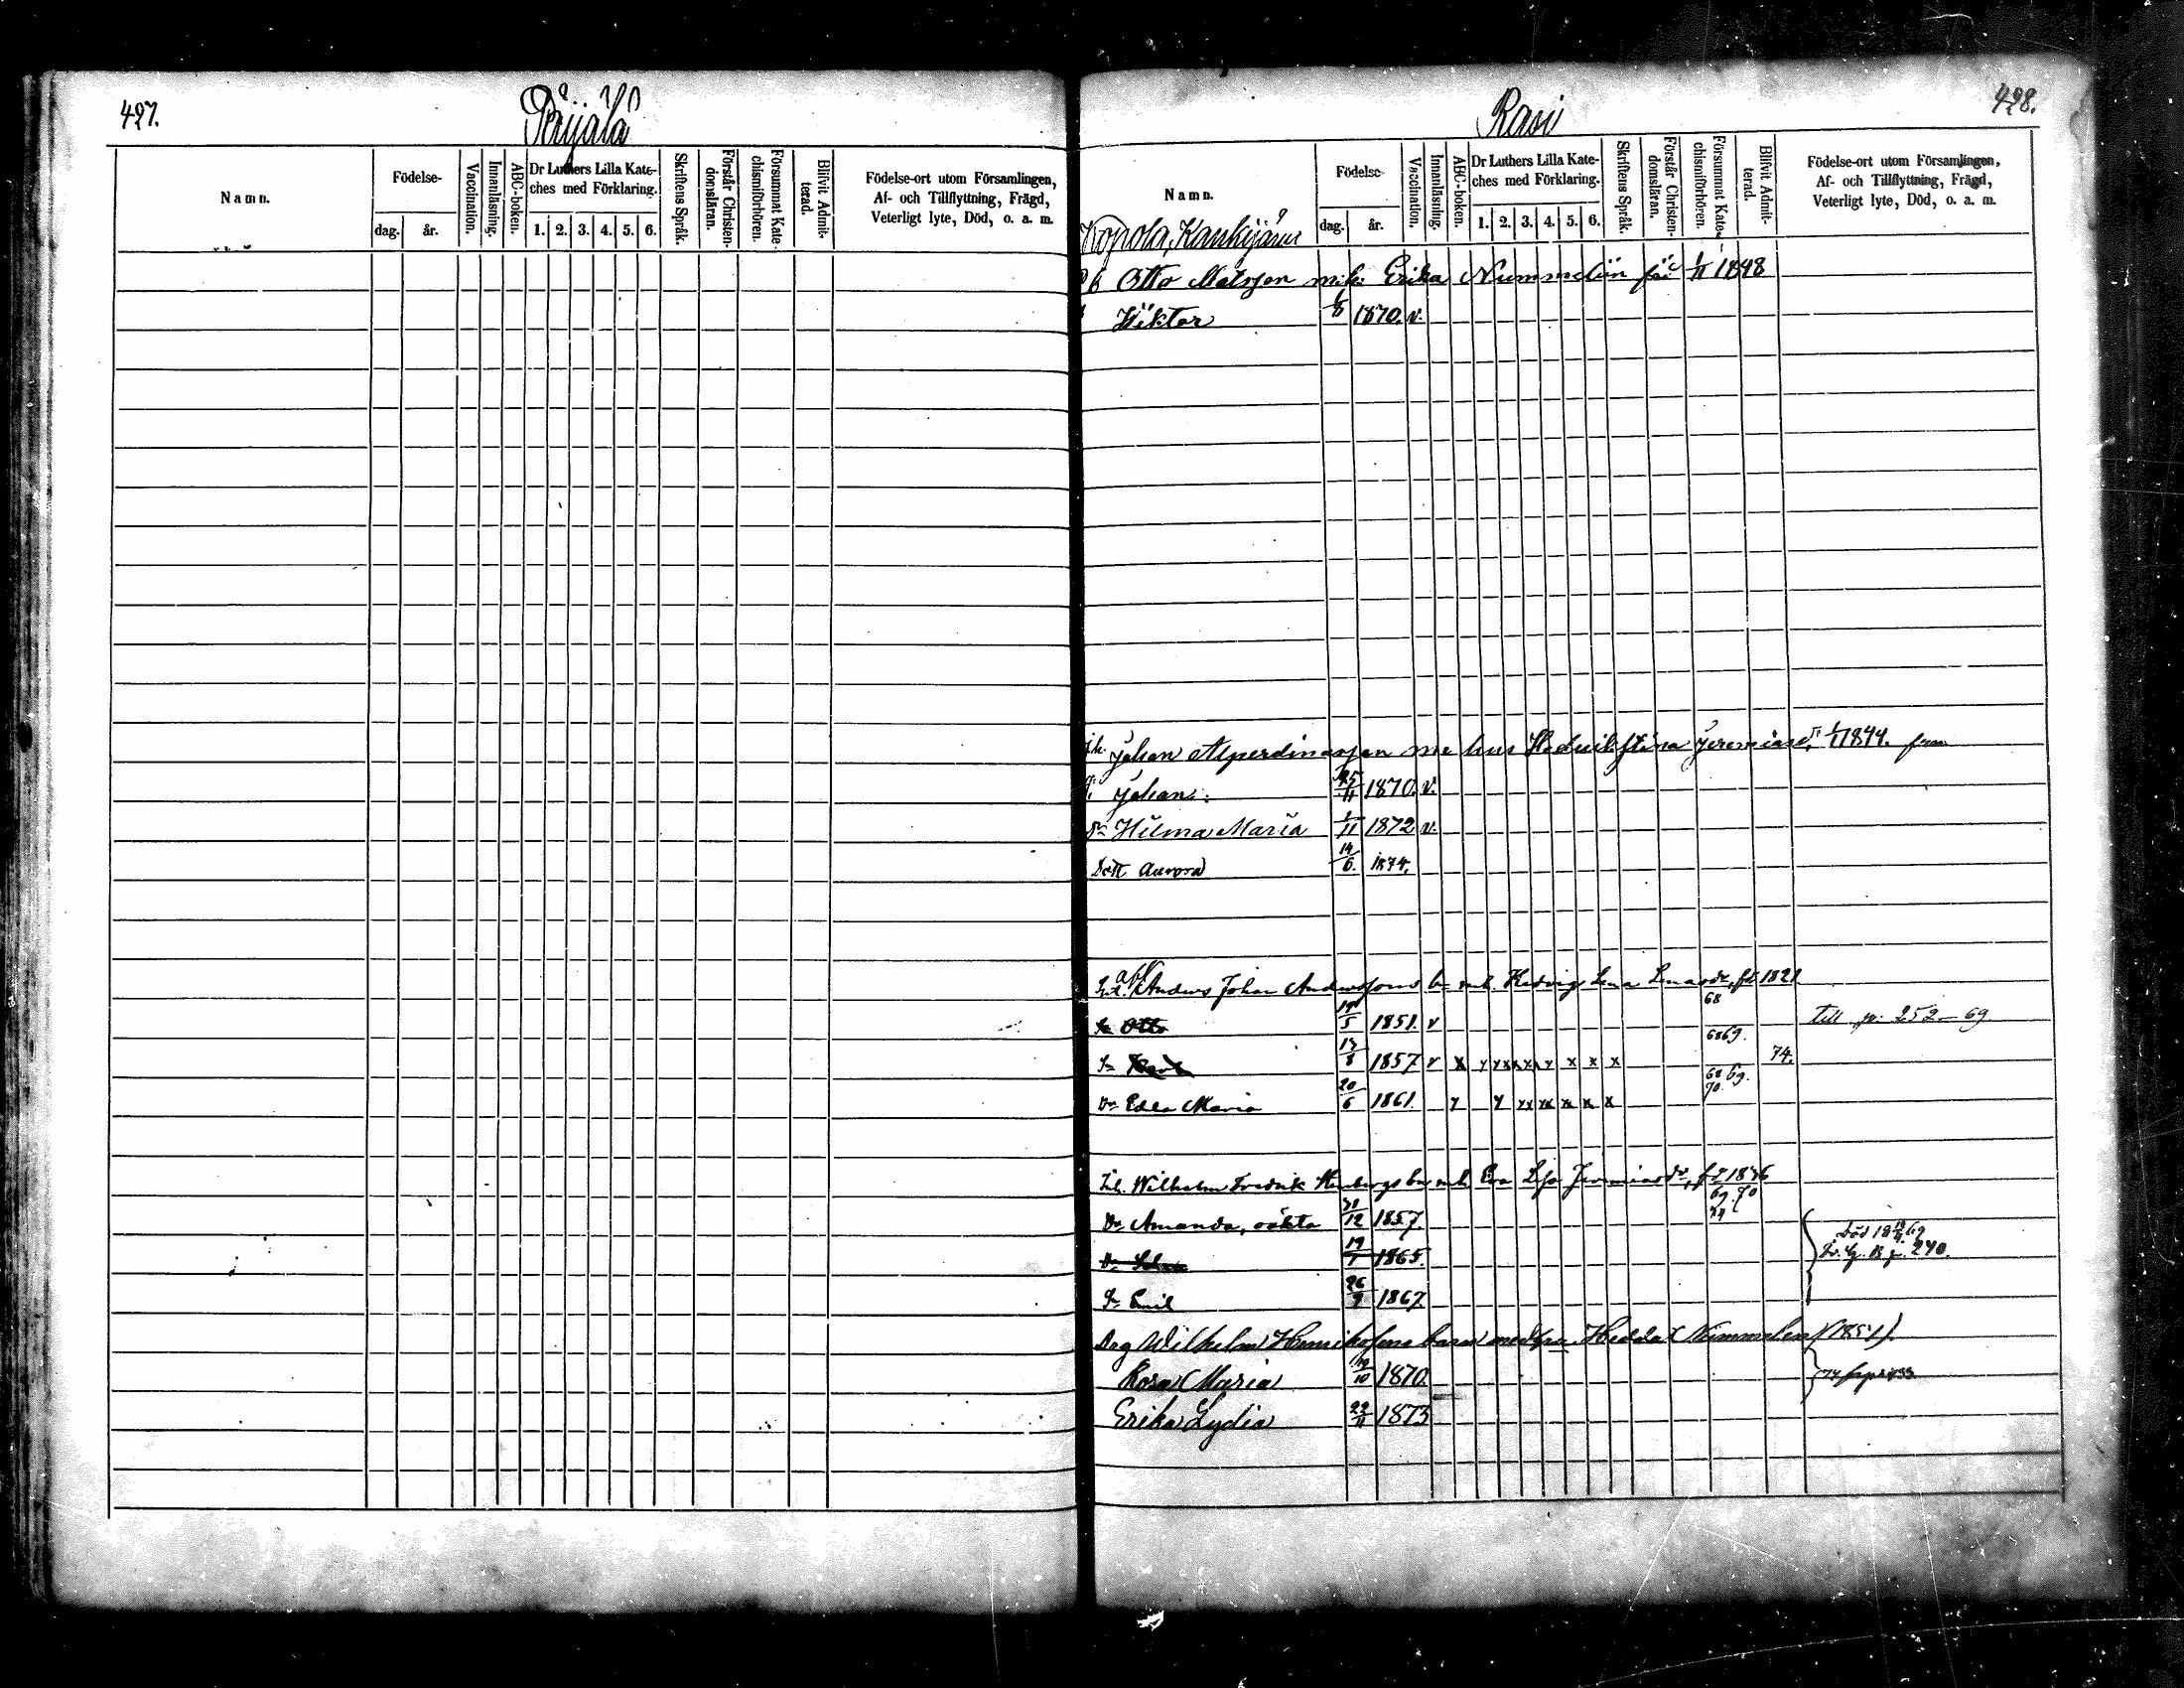 427.
Päijälä
Namn.
Födelse-
dag.
år.
Vaccination.
Innanläsning.
ABC-boken.
Dr Luthers Lilla Kate-
ches med Förklaring.
1. 2. 3. 4. 5. 6.
Skriftens Språk.
Förstår Christen-
domsläran.
Försummat Kate-
chismiförhören.
Blifvit Admit-
terad.
Födelse-ort utom Församlingen,
Af- och Tillflyttning, Frägd,
Veterligt lyte, Död, o. a. m.
428.
Rasi
Namn.
Födelse-
dag.
år.
Vaccination.
Innanläsning.
ABC-boken.
Dr Luthers Lilla Kate-
ches med Förklaring.
1. 2. 3. 4. 5. 6.
Skriftens Språk.
Förstår Christen-
domsläran.
Försummat Kate-
chismiförhören.
Blifvit Admit-
terad.
Födelse-ort utom Församlingen,
Af- och Tillflyttning, Frägd,
Veterligt lyte, Död, o. a. m.
Kopola, Kankijärvi
Otto Matsson Erika Nummelin 1848
Wiktor 1870. v.
Johan me hus Hedvik Stina Jeremiasd. 1844.
Johan 25/11 1870. v.
Hilma Maria 1/11 1872 v.
Dott Aurora 14/6. 1874.
Anders Johan Anderssons Hedvig Lena 1821
68
Sn Otto 5 1851. v Till p. 252 - 69
6869.
Sn 13/8 1857 v x x x x 74.
68 69.
70.
Dr Edla Maria 20/6 1861. x x x
Inh. Wilhelm Fredrik Eva Lisa Jeremiasdr, 1836
69. 70
Dr Amanda, oäkta 31/12 1857.
Dr 19 1865. Död 69
240.
Sn Emil 26/9 1867.
Drg Wilhelm Henrikssons barn med Hedda Nummelin (1851).
Rosa Maria 10 1870.
Erika Lydia 22/11 1873